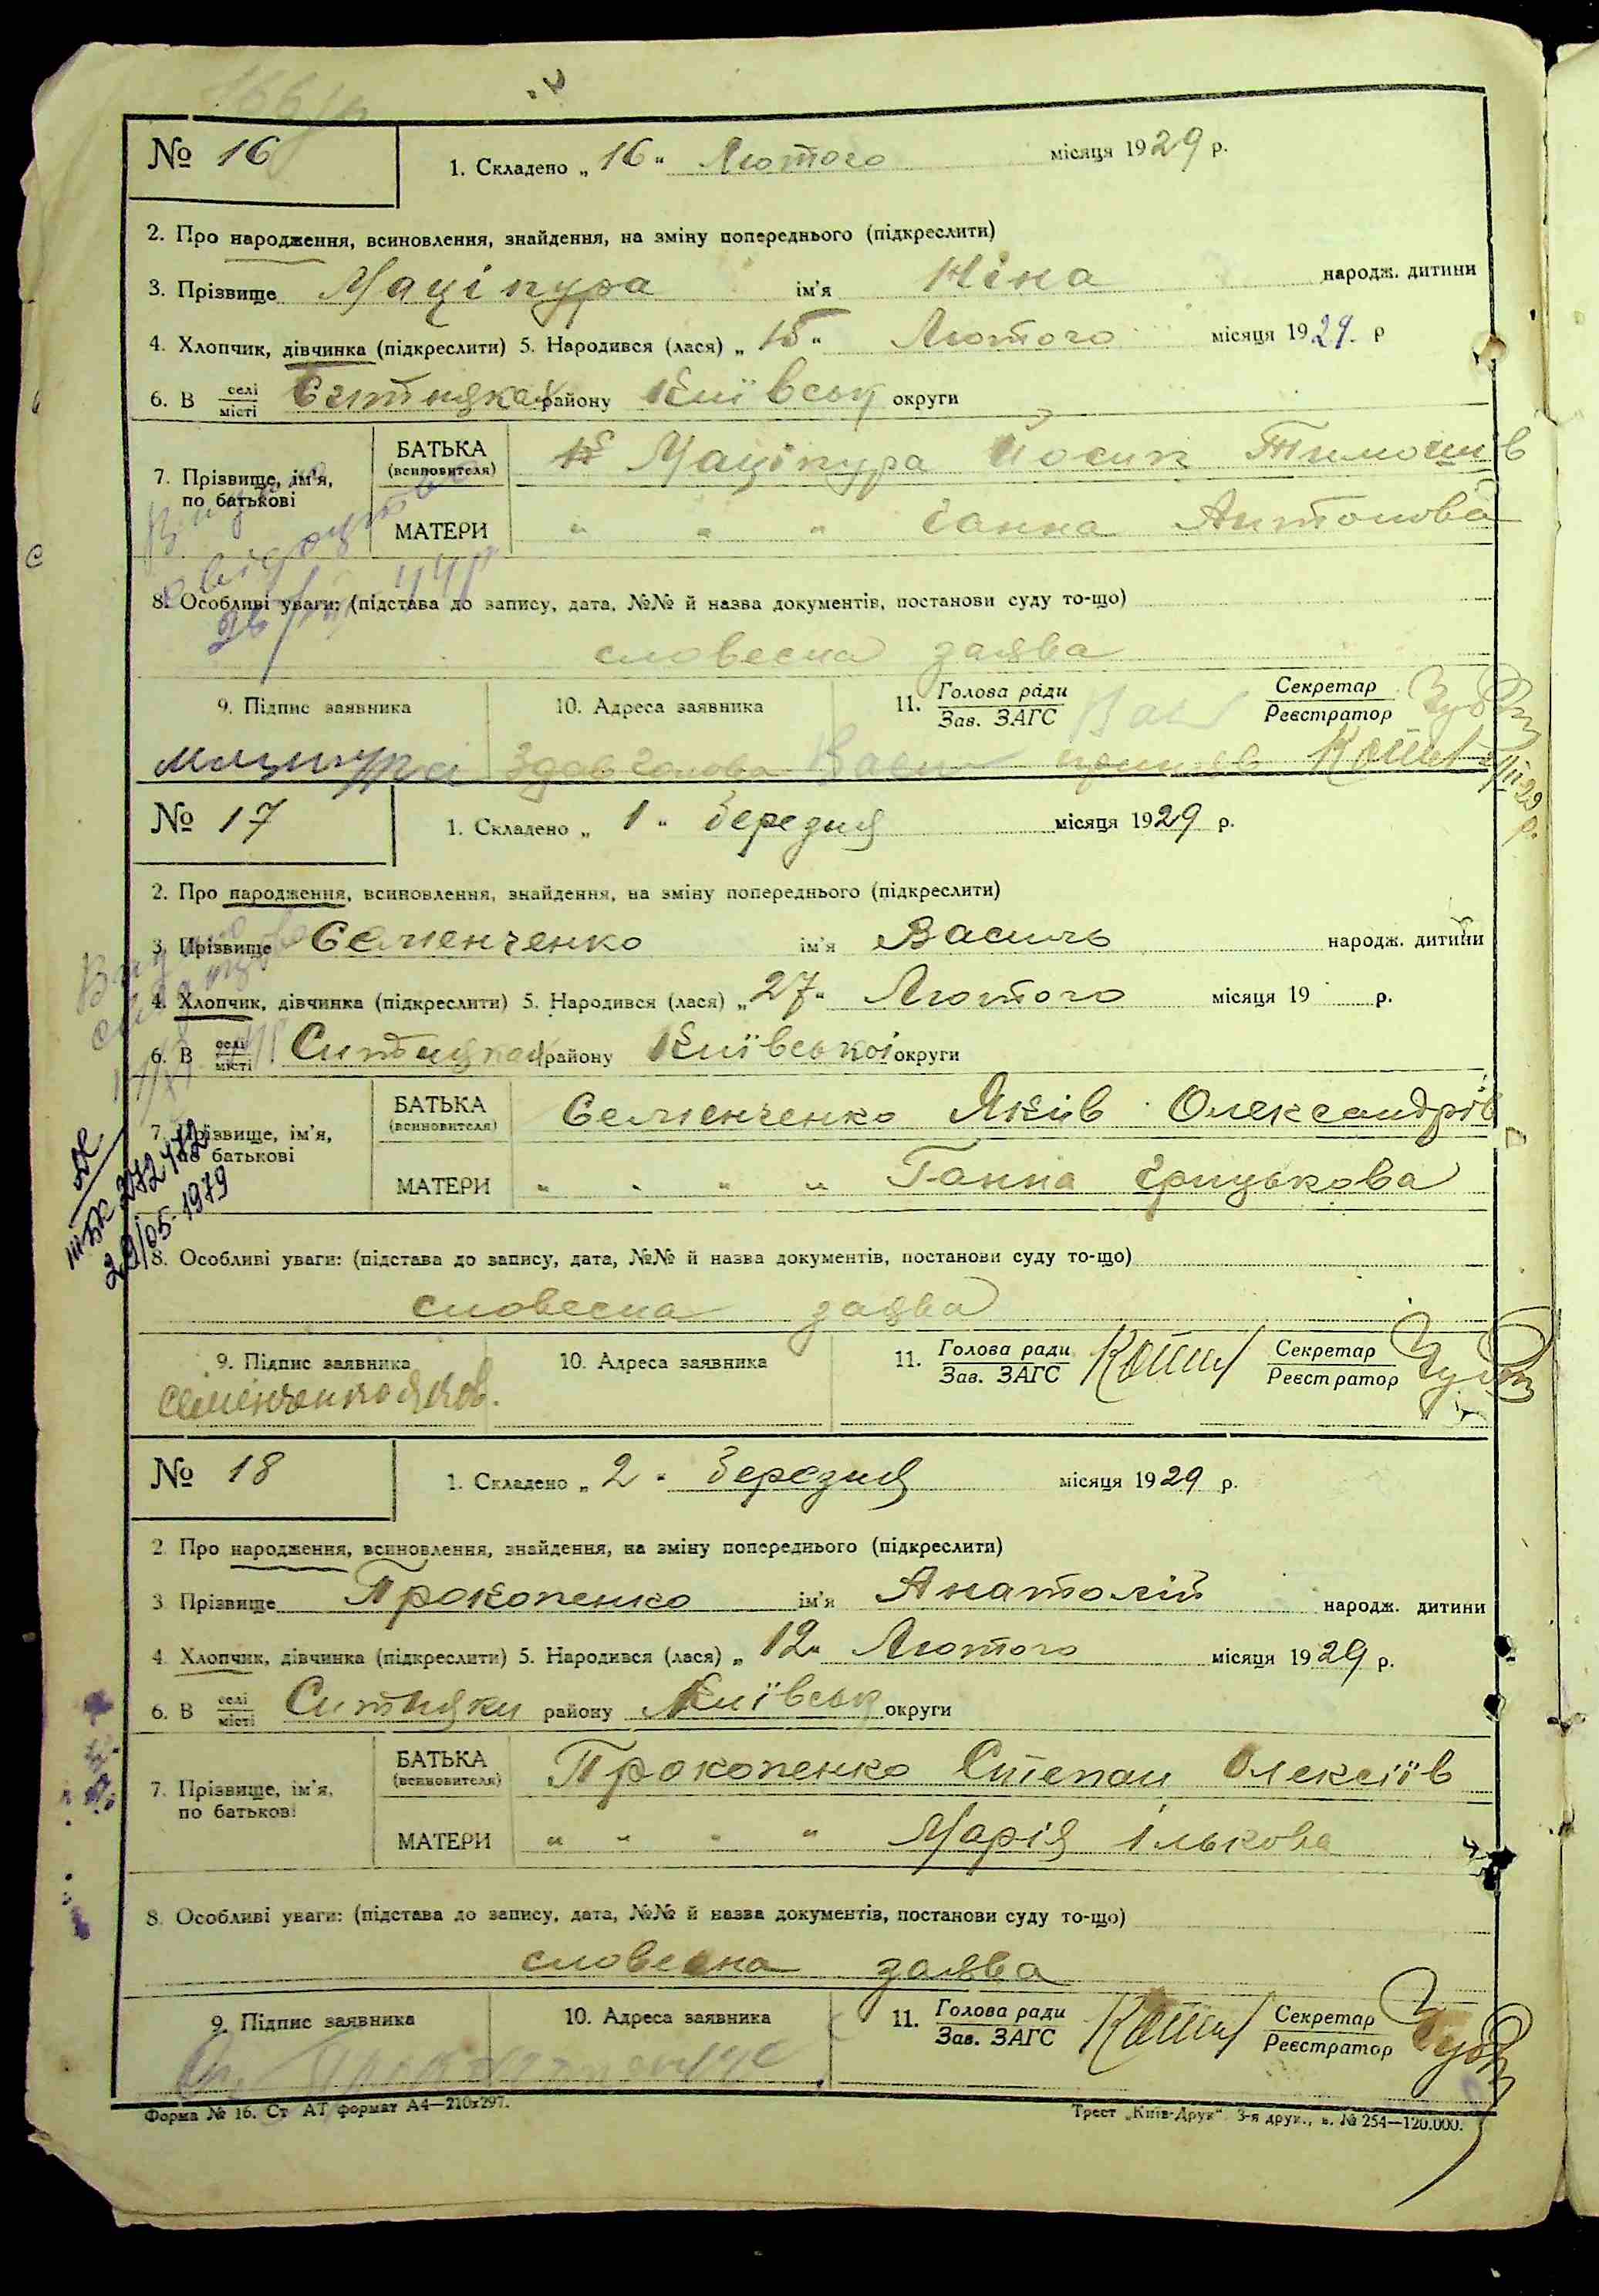 № 16
1. Складено „ 16 “ Лютого місяця 1929 р.
2. Про народження, всиновлення, знайдення, на зміну попереднього (підкреслити)
3. Прізвище Маціпура ім'я Ніна народж. дитини
4. Хлопчик, дівчинка (підкреслити) 5. Народився (лася) „ 15 “ Лютого місяця 1929. р
6. В селі/місті Ситняках району Київськ округи
7. Прізвище, ім'я, по батькові
БАТЬКА (всиновителя) Маціпура Йосип Тимошів
МАТЕРИ " " " Ганна Антонова
8. Особливі уваги: (підстава до запису, дата, №№ й назва документів, постанови суду то-що)
словесна заява
9. Підпис заявника 10. Адреса заявника 11. Голова ради/Зав. ЗАГС Секретар/Реєстратор
Маципура Здав голова прийняв
№ 17
1. Складено „ 1 “ Березня місяця 1929 р.
2. Про народження, всиновлення, знайдення, на зміну попереднього (підкреслити)
3. Прізвище Семенченко ім'я Василь народж. дитини
4. Хлопчик, дівчинка (підкреслити) 5. Народився (лася) „ 27 “ Лютого місяця 19 р.
6. В селі/місті Ситняках району Київської округи
7. Прізвище, ім'я, по батькові
БАТЬКА (всиновителя) Семенченко Яків Олександрів
МАТЕРИ " " " " Ганна Грицькова
29/05-1979
8. Особливі уваги: (підстава до запису, дата, №№ й назва документів, постанови суду то-що)
словесна заява
9. Підпис заявника 10. Адреса заявника 11. Голова ради/Зав. ЗАГС Секретар/Реєстратор
Семенченко Яков.
№ 18
1. Складено „ 2 “ Березня місяця 1929 р.
2 Про народження, всиновлення, знайдення, на зміну попереднього (підкреслити)
3 Прізвище Прокопенко ім'я Анатолій народж. дитини
4 Хлопчик, дівчинка (підкреслити) 5. Народився (лася) „ 12 “ Лютого місяця 1929 р.
6. В селі/місті Ситняки району Київськ округи
7. Прізвище, ім'я, по батькові
БАТЬКА (всиновителя) Прокопенко Степан Олексіїв
МАТЕРИ " " " " Марія Ількова
8. Особливі уваги: (підстава до запису, дата, №№ й назва документів, постанови суду то-що)
словесна заява
9. Підпис заявника 10. Адреса заявника 11. Голова ради/Зав. ЗАГС Секретар/Реєстратор
Форма № 16. Ст АТ формат А4—210x297. Трест „Київ-Друк“ 3-я друк., з. № 254—120.000.